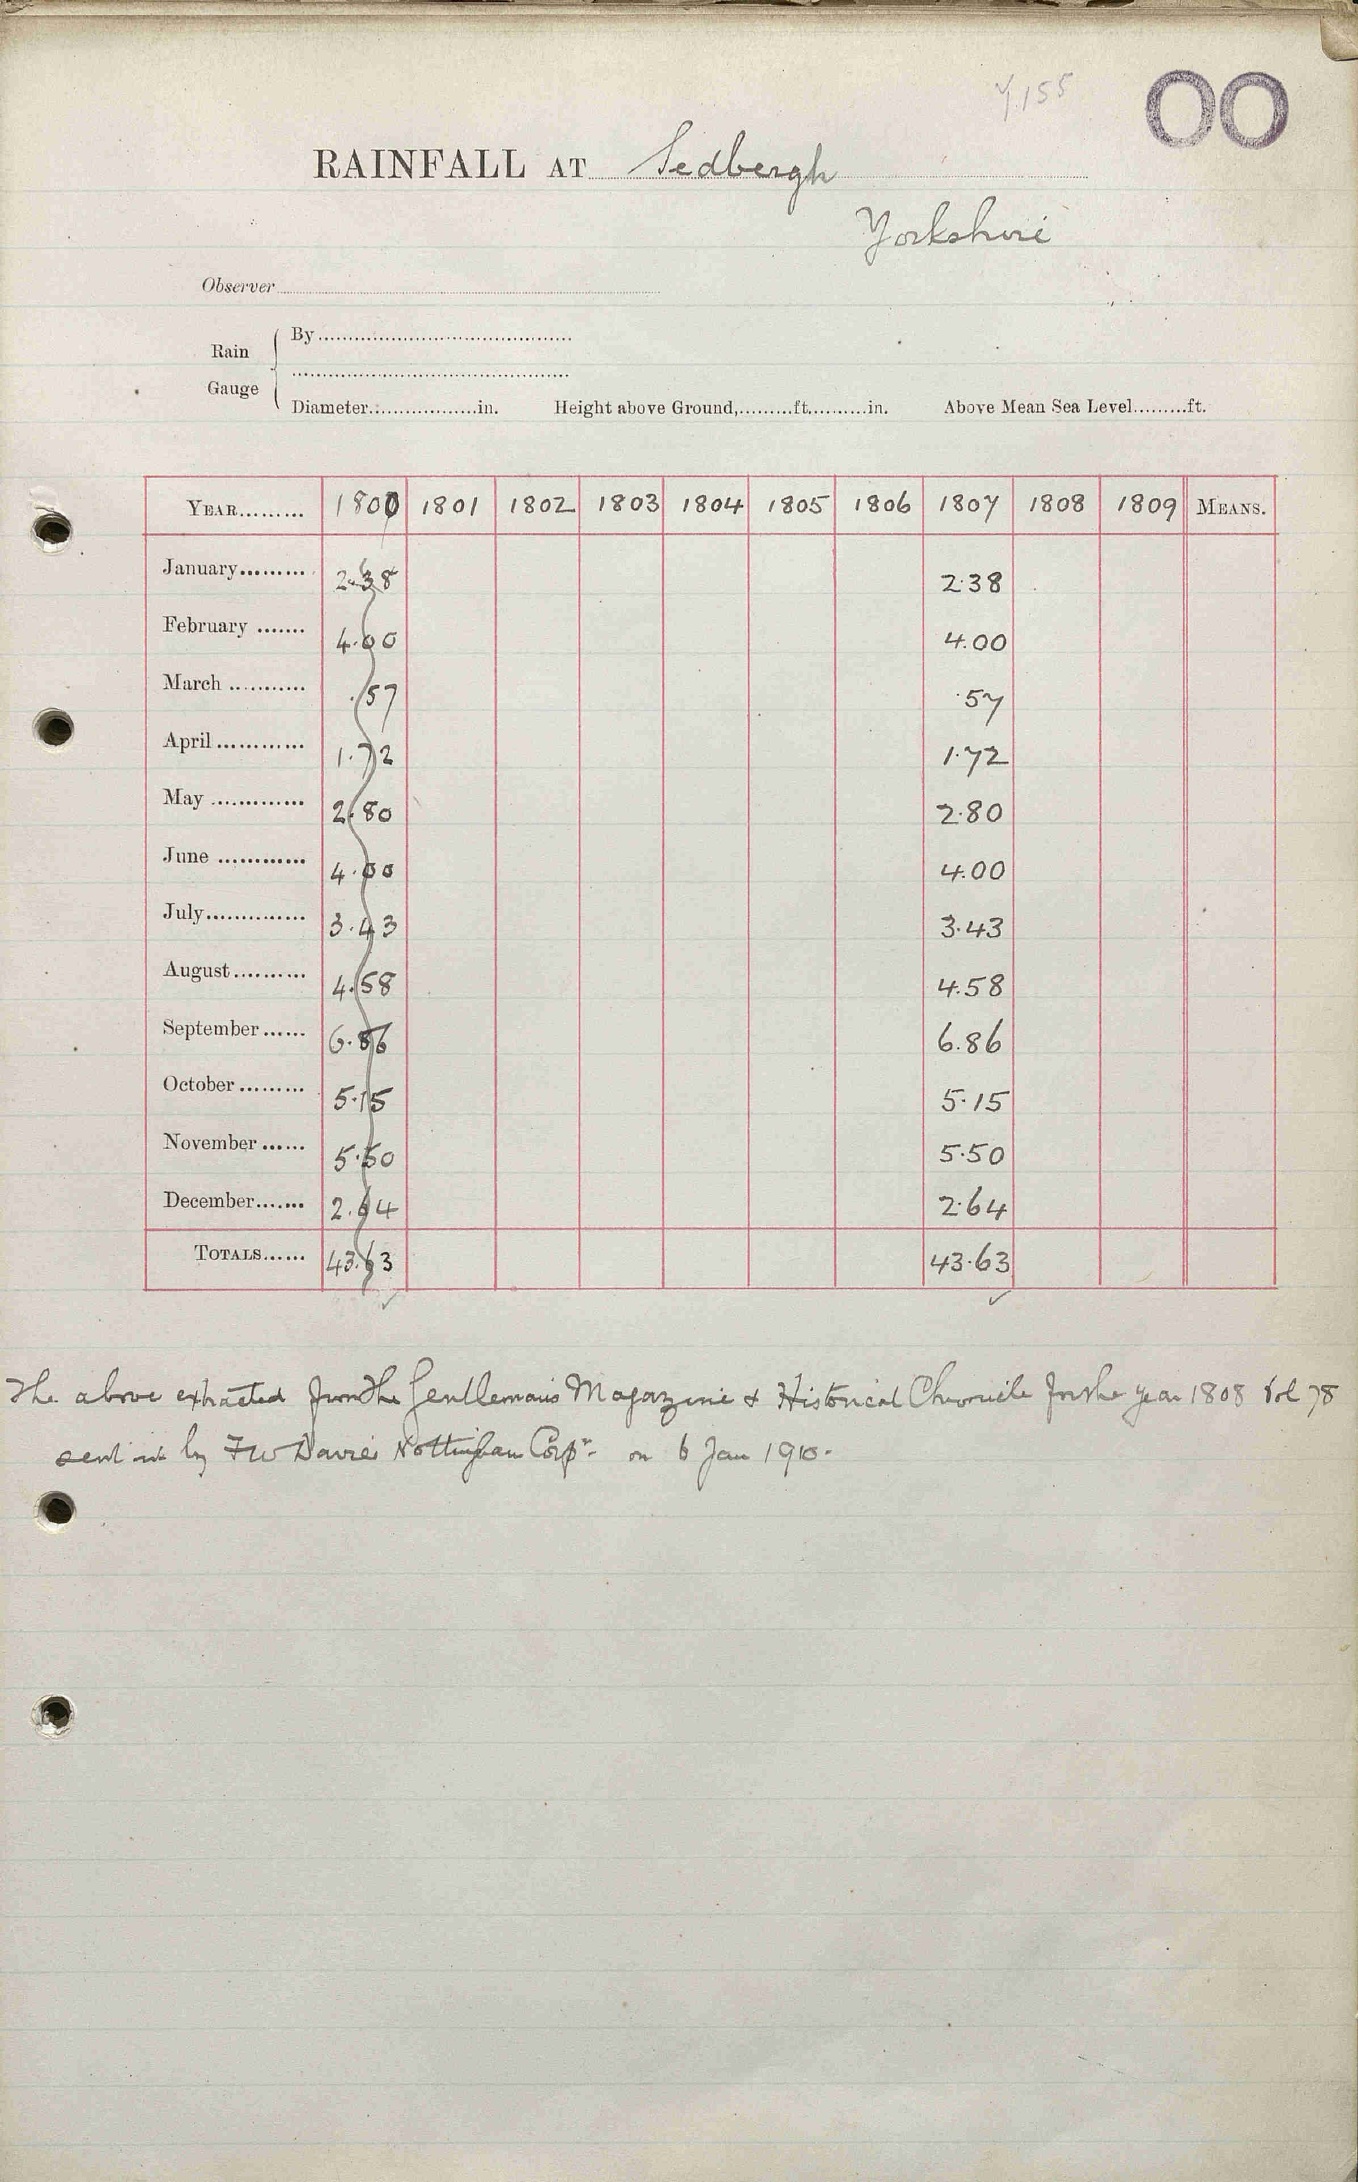 Y.155
OO
RAINFALL AT Sedbergh
Yorkshire
Observer
Rain Gauge
By
Diameter in. Height above Ground, ft. in. Above Mean Sea Level ft.
YEAR 1800 1801 1802 1803 1804 1805 1806 1807 1808 1809 MEANS.
January 2.38 2.38
February 4.00 4.00
March .57 .57
April 1.72 1.72
May 2.80 2.80
June 4.00 4.00
July 3.43 3.43
August 4.58 4.58
September 6.86 6.86
October 5.15 5.15
November 5.50 5.50
December 2.64 2.64
TOTALS 43.63 43.63
The above extracted from the Gentlemans Magazine & Historical Chronicle for the year 1808 Vol 78
sent in by FW Davies Nottingham Corpn. on 6 Jan 1910.